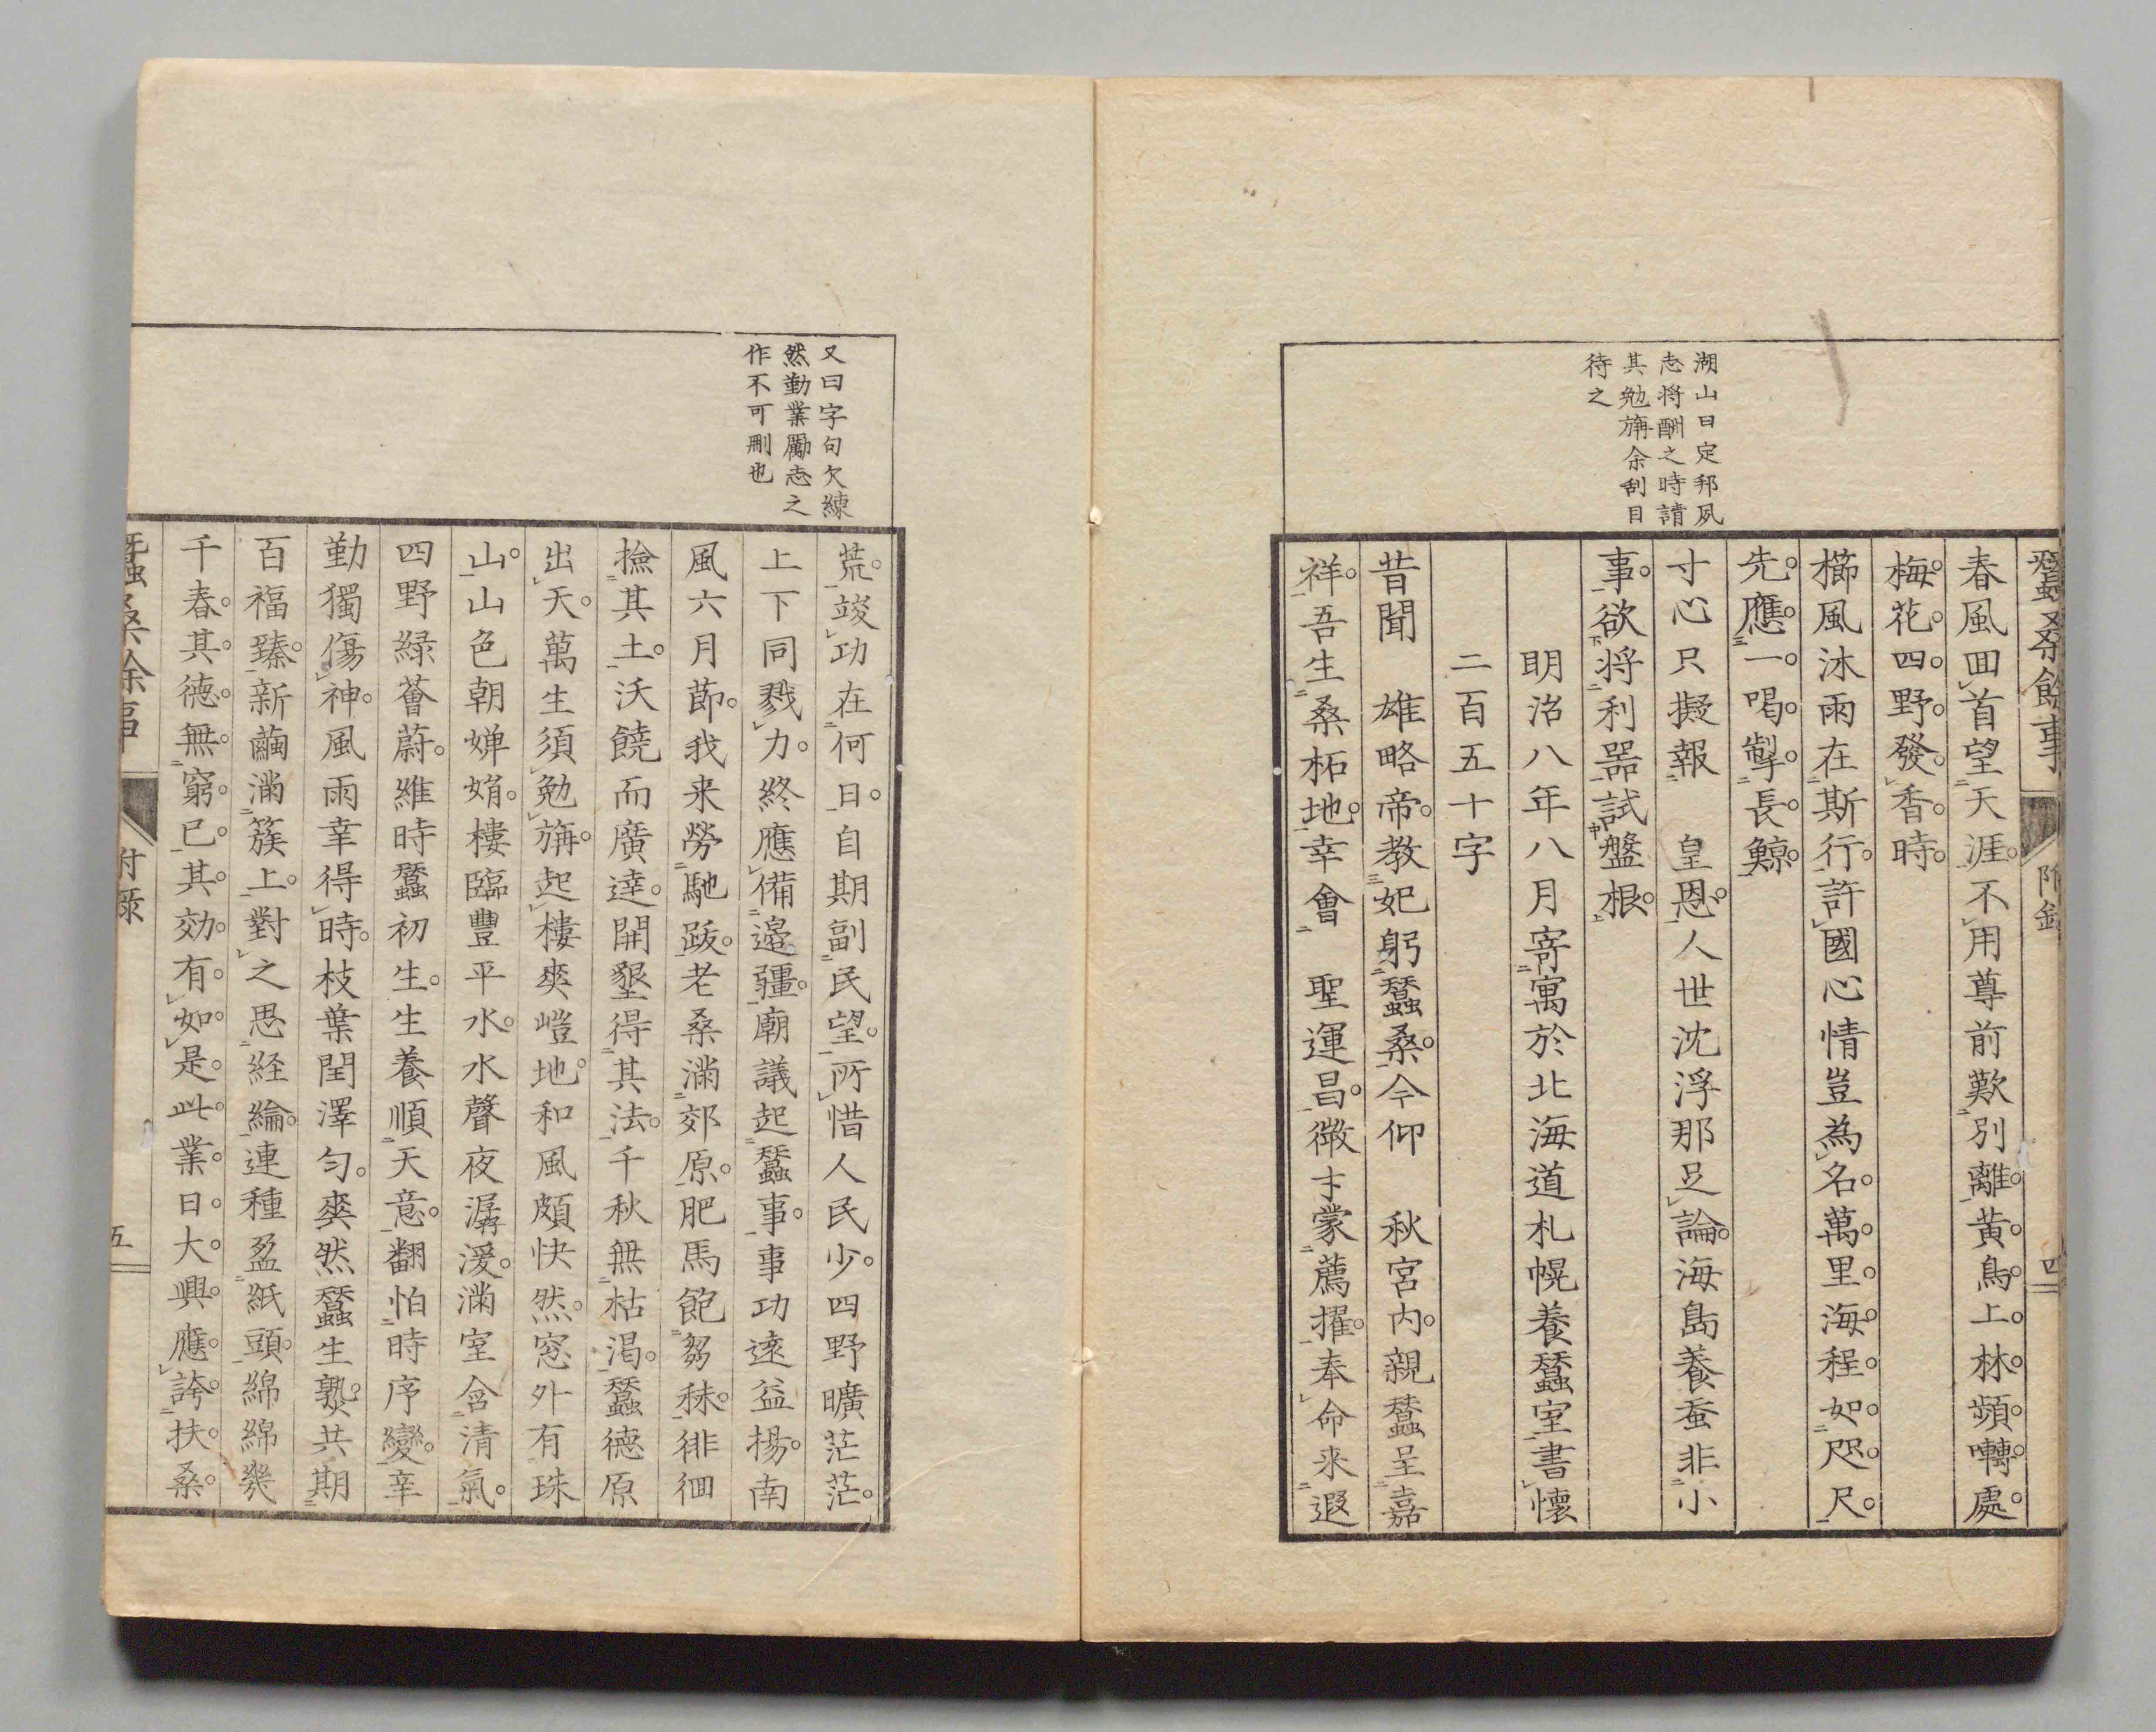 蠶桑餘事 附錄 四
湖山曰定邦夙
志將酬之時請
其勉旃余刮目
待之
春風回首望天涯。不用尊前歎別離。黃鳥。上。林。頻。囀。處。
梅。花。四。野。發。香。時。
櫛風沐雨在斯行。許國心情豈為名。萬。里。海。程。如。咫。尺。
先。應。一。喝。掣。長。鯨。
寸心只擬報　皇恩。人世沈浮那足論。海島養蚕非小
事。欲將利器試盤根。
明治八年八月寄寓於北海道札幌養蠶室書懷
二百五十字
昔聞　雄略帝。教妃躬蠶桑。今仰　秋宮內。親蠶呈嘉
祥。吾生桑柘地。幸會　聖運昌。微才蒙薦擢。奉命来遐
又曰字句欠練
然勤業勵志之
作不可刪也
荒。竣功在何日。自期副民望。所惜人民少。四野曠茫茫。
上下同戮力。終應備邊疆。廟議起蠶事。事功遠益揚。南
風六月節。我来勞馳跋。老桑滿郊原。肥馬飽芻秣。徘徊
撿其土。沃饒而廣達。開墾得其法。千秋無枯渇。蠶德原
出天。萬生須勉旃。起樓爽塏地。和風頗快然。窓外有珠
山。山色朝嬋娟。樓臨豐平水。水聲夜潺湲。滿室含清氣。
四野緑薈蔚。維時蠶初生。生養順天意。翻怕時序變。辛
勤獨傷神。風雨幸得時。枝葉閏澤匀。爽然蠶生熟。共期
百福臻。新繭滿簇上。對之思経綸。連種盈紙頭。綿綿幾
千春。其。德。無。窮。已。其。効。有。如。是。此。業。日。大。興。應。誇。扶。桑。
蠶桑餘事 附錄 五